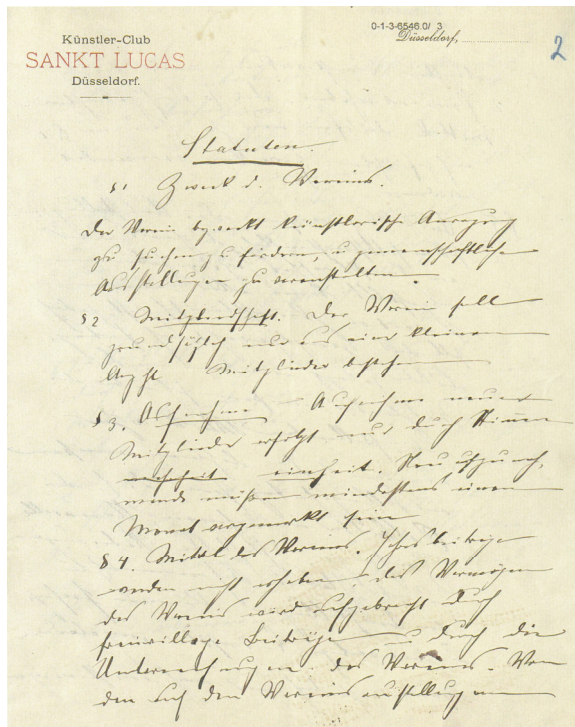 0-1-3-6546.0/ 3
Künstler-Club
SANKT LUCAS
Düsseldorf.
Düsseldorf,
2
Statuten.
§1 Zweck d. Vereins.
Der Verein bezweckt künstlerische Anregung
zu suchen, zu fördern, u. gemeinschaftliche
Ausstellungen zu veranstalten
§2 Mitgliedschaft. Der Verein soll
grundsätzlich nur aus einer kleinen
Anzahl Mitglieder bestehen
§3. Aufnahme – Aufnahme neuer
Mitglieder erfolgt nur durch Stimmen
mehrheit einheit. Neu aufzuneh
mende müßen mindestens einen
Monat vorgemerkt sein
§4. Mittel des Vereins. Jahresbeiträge
werden nicht erhoben. das Vermögen
des Vereins wird aufgebracht durch
freiwillige Beiträge u. durch die
Unternehmungen des Vereins. Von
den auf den Vereinsaustellungen